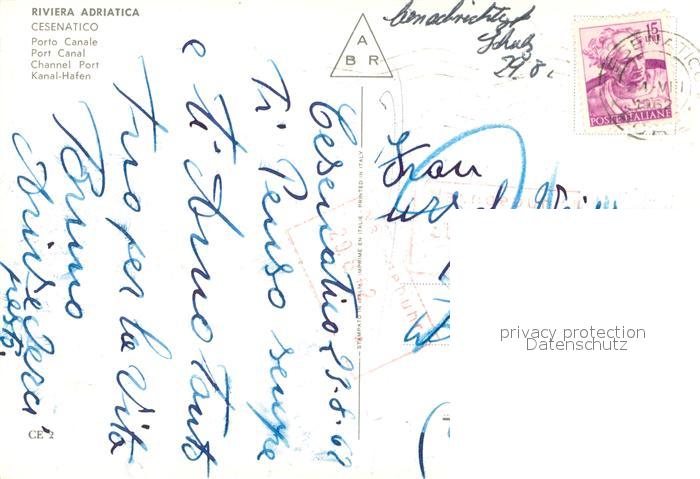 RIVIERA ADRIATICA
CESENATICO
Porto Canale
Port Canal
Channel Port
Kanal-Hafen
A
B R
Schulz
29.8.
15
POSTE ITALIANE
Cesenatico 25-8-62
Ti Penso sempre
e ti Amo tanto
tuo per la Vita
Tonino
Arrivederci
presto.
STAMPATO IN ITALIA IMPRIMÉ EN ITALIE - PRINTED IN ITALY
Frau
CE 2
privacy protection
Datenschutz